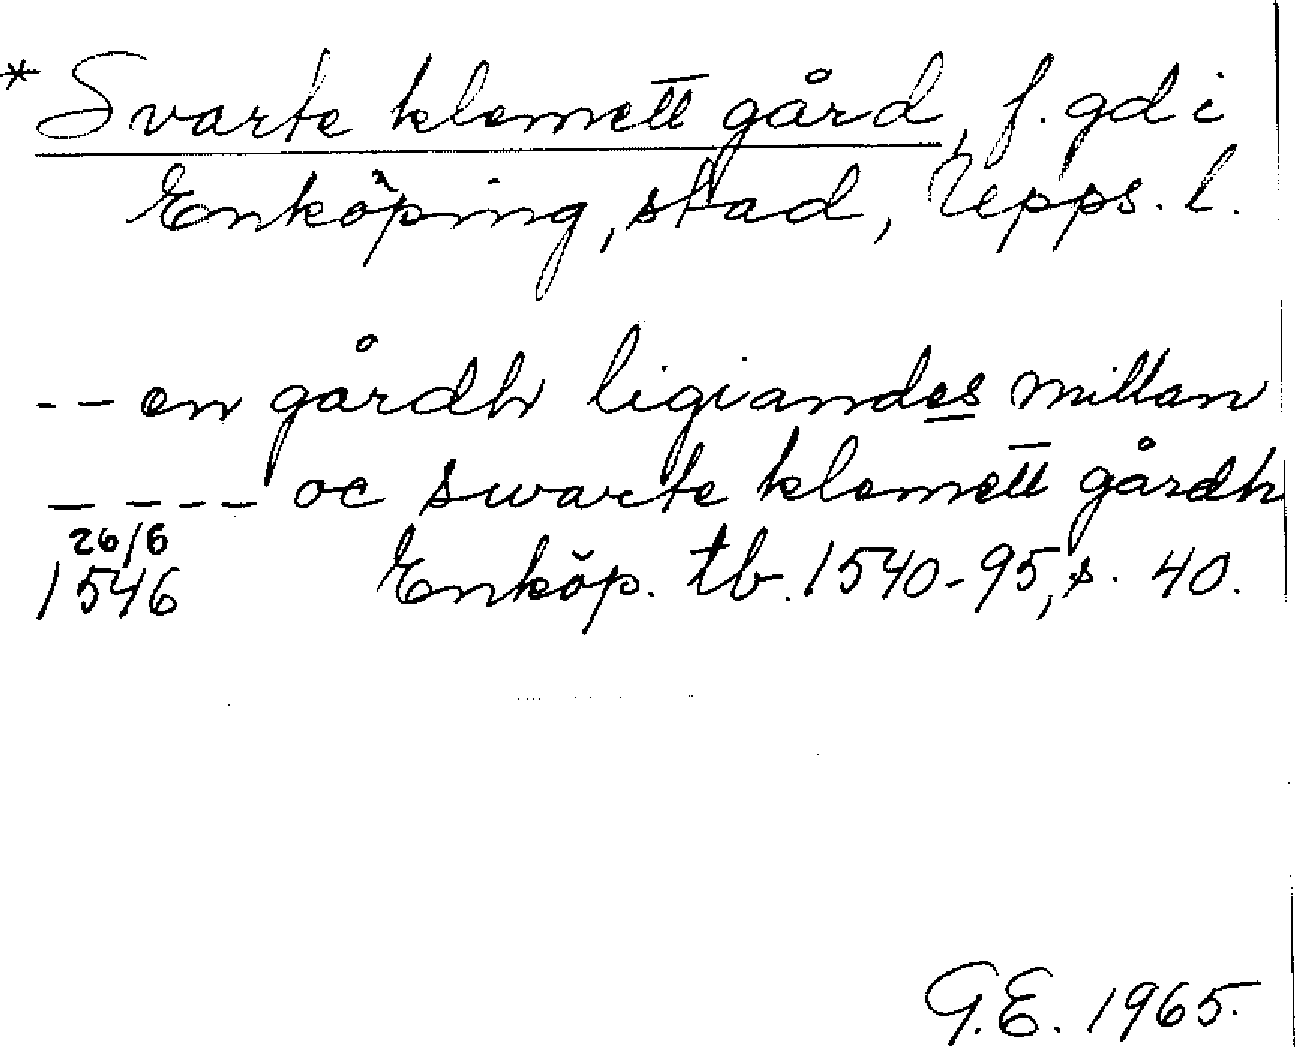 * Svarte klemett gård, f. gd i
Enköping, stad, Upps. l.
-- en gårdh ligiandes millan
_ _ _ _ oc swarte klemett gårdh
26/6
1546 Enköp. tb. 1540-95, s. 40.
G.E. 1965.